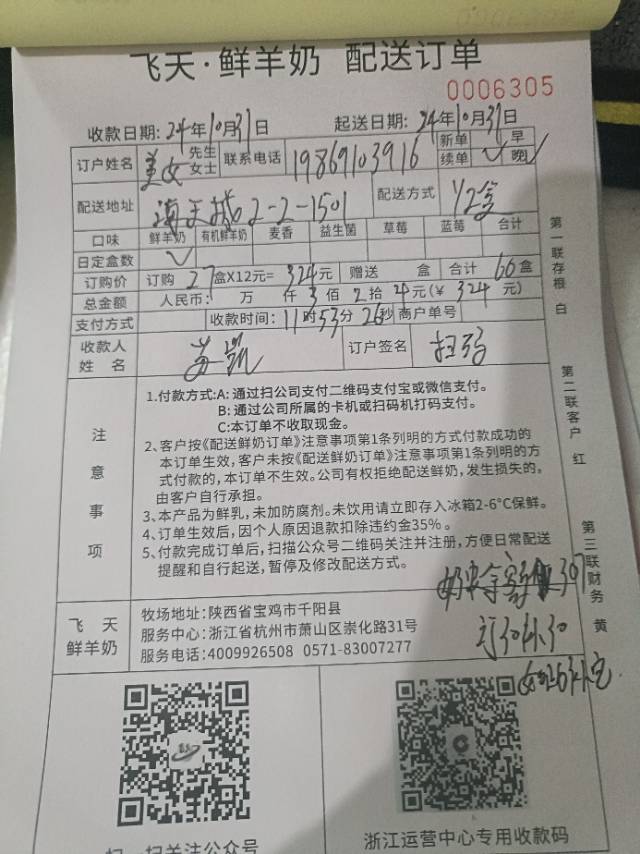 飞天·鲜羊奶 配送订单
0006305
收款日期: 24年10月31日 起送日期: 24年10月31日
订户姓名 美女 先生 女士 联系电话 19869103916 新单 续单 ✓ 早 晚 ✓
配送地址 海天城2-2-1501 配送方式 1/2盒
口味 鲜羊奶 有机鲜羊奶 麦香 益生菌 草莓 蓝莓 合计
日定盒数 ✓
订购价 订购 27 盒X12元= 324元 赠送 盒 合计 66 盒
总金额 人民币: 万 仟 3 佰 2 拾 4 元(￥ 324 元)
支付方式 收款时间: 11时53分26秒 商户单号
收款人
姓 名 订户签名
注意事项
1.付款方式:A: 通过扫公司支付二维码支付宝或微信支付。
B: 通过公司所属的卡机或扫码机打码支付。
C:本订单不收取现金。
2、客户按《配送鲜奶订单》注意事项第1条列明的方式付款成功的
本订单生效，客户未按《配送鲜奶订单》注意事项第1条列明的方
式付款的，本订单不生效。公司有权拒绝配送鲜奶，发生损失的，
由客户自行承担。
3、本产品为鲜乳，未加防腐剂。未饮用请立即存入冰箱2-6°C保鲜。
4、订单生效后，因个人原因退款扣除违约金35%。
5、付款完成订单后，扫描公众号二维码关注并注册，方便日常配送
提醒和自行起送，暂停及修改配送方式。
订30补30
飞 天
鲜羊奶
牧场地址:陕西省宝鸡市千阳县
服务中心:浙江省杭州市萧山区崇化路31号
服务电话:4009926508 0571-83007277
扫一扫关注公众号
浙江运营中心专用收款码
第一联存根 白
第二联客户 红
第三联财务 黄